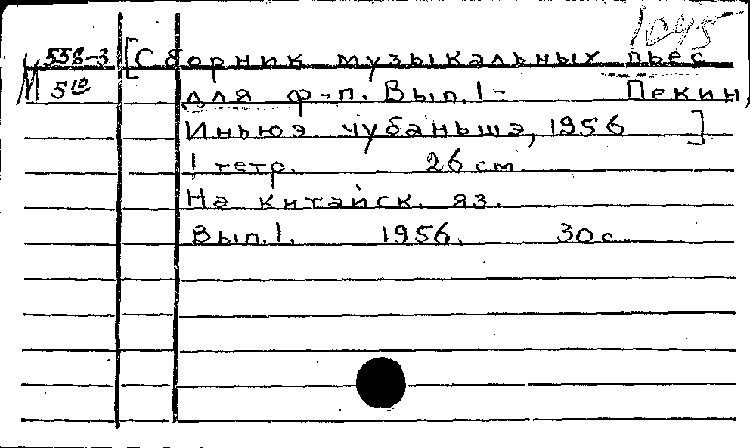 1095
М 558-3 [Сборник музыкальных пьес
512 для ф-п. Вып. 1- Пекин,
Иньюэ чубаньшэ, 1956 ]
1 тетр. 26 см
На китайск. яз.
Вып. 1. 1956. 30 с